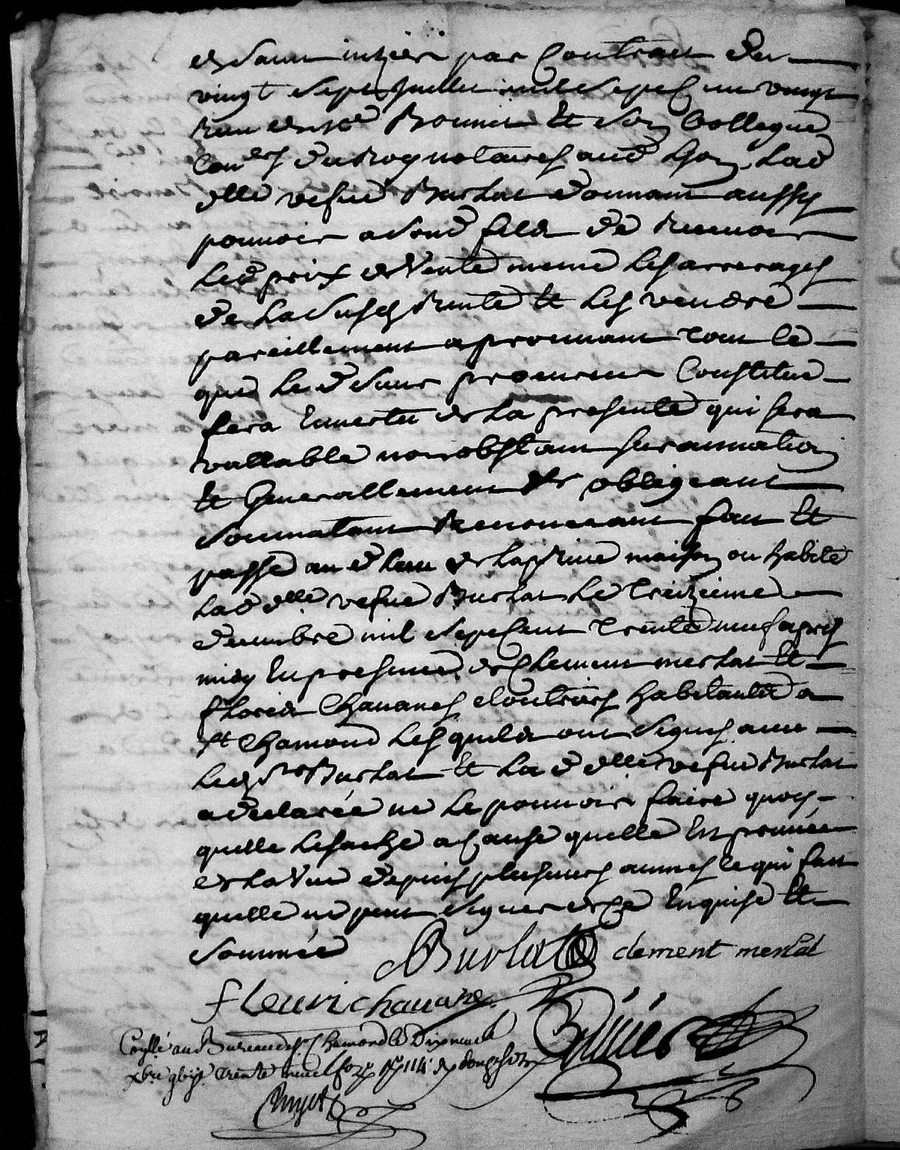 par Contrat du
vingt Sept Juillet mil Sept Cent vingt
Bonnet Et Son Collegue
du Roy notaires aud Lad
dlle vefue Burlat donnant aussy
pouvoir a Sond filx de
Led prix de Vente meme Les arrerages
de La Susd Rente Et Les vendre
pareillement aprouvant tout Ce
que Led Sieur procureur Constitué
fera Envertu de La presente qui Sera
vallable nonobstant Surannation
Et Generallement obligeant
Soumetant Renoncant fait Et
passé aud lieu de maison ou habite
Lad dlle vefue Burlat Le treizieme
decembre mil Sept Cent trente neuf apres
midy En presence de Clement merlat Et
Chavanes Cloutiers habitants a
St Chamond Lesquels ont Signes avec
Led Sr Burlat Et La d dlle vefue Burlat
a declarée ne Le pouvoir faire quoy
quelle Le Sache a Cause quelle Est privée
de La Vue depuis plusieurs années Ce qui fait
quelle ne peut Signer de Ce Enquise Et
Sommée Burlat clement merlat
fleuri chavane
au Bureau de St Chamond Le
trente neuf